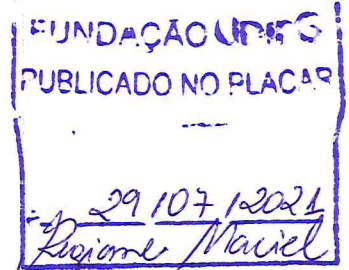 FUNDAÇÃO UNIRG
PUBLICADO NO PLACAR
29/07/2021
Maciel